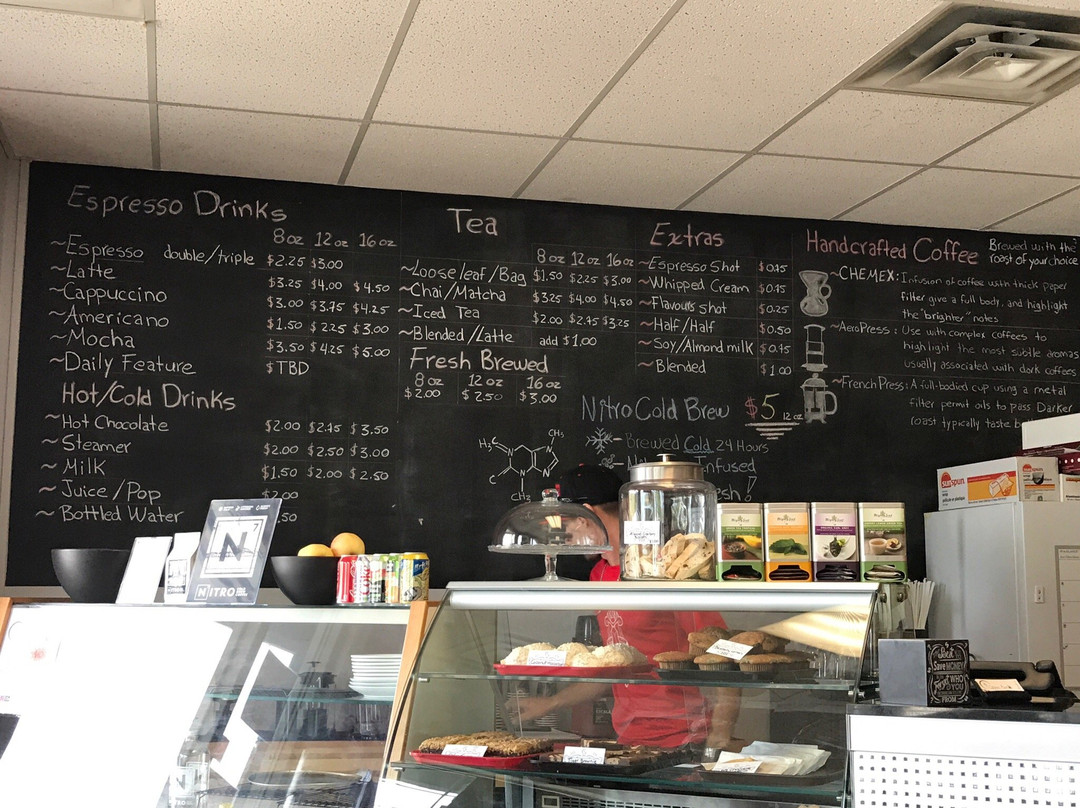 Espresso Drinks
8 oz 12 oz 16 oz
~Espresso double/triple $2.25 $3.00
~Latte $3.25 $4.00 $4.50
~Cappuccino $3.00 $3.75 $4.25
~Americano $1.50 $2.25 $3.00
~Mocha $3.50 $4.25 $5.00
~Daily Feature $TBD
Hot/Cold Drinks
~Hot Chocolate $2.00 $2.75 $3.50
~Steamer $2.00 $2.50 $3.00
~Milk $1.50 $2.00 $2.50
~Juice/Pop $2.00
~Bottled Water .50
Tea
8 oz 12 oz 16 oz
~Loose leaf/Bag $1.50 $2.25 $3.00
~Chai/Matcha $3.25 $4.00 $4.50
~Iced Tea $2.00 $2.75 $3.25
~Blended/Latte add $1.00
Fresh Brewed
8 oz 12 oz 16 oz
$2.00 $2.50 $3.00
Extras
~Espresso Shot $0.75
~Whipped Cream $0.75
~Flavours shot $0.25
~Half/Half $0.50
~Soy/Almond milk $0.75
~Blended $1.00
Nitro Cold Brew $5 12 oz
Brewed Cold 24 Hours
Infused
esh!
CH₃
H₃C
N
N
N
N
C
CH₃
Handcrafted Coffee Brewed with the
roast of your choice
~CHEMEX: Infusion of coffee with thick paper
filter give a full body, and highlight
the "brighter" notes
~AeroPress: Use with complex coffees to
highlight the most subtle aromas
usually associated with dark coffees
~French Press: A full-bodied cup using a metal
filter permit oils to pass. Darker
roast typically taste b
N
NITRO
sunspun
SAVE MONEY
WHO
YOU
FROM